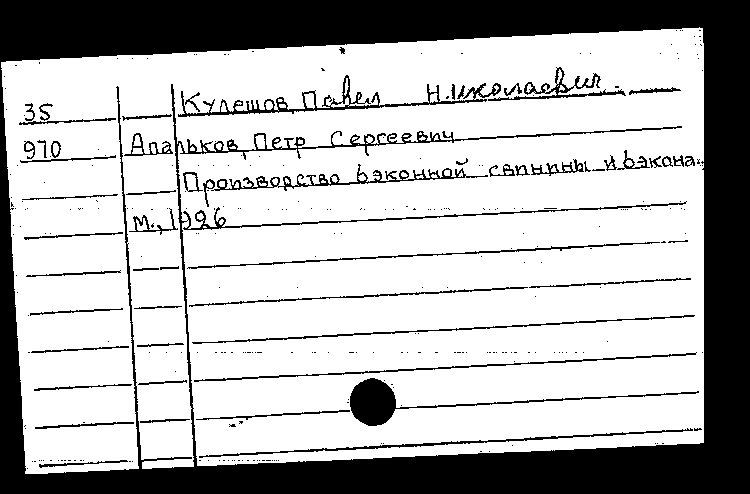 35 Кулешов, Павел Николаевич.
970 Апальков, Петр Сергеевич
Производство бэконной свинины и бэкона.
М., 1926